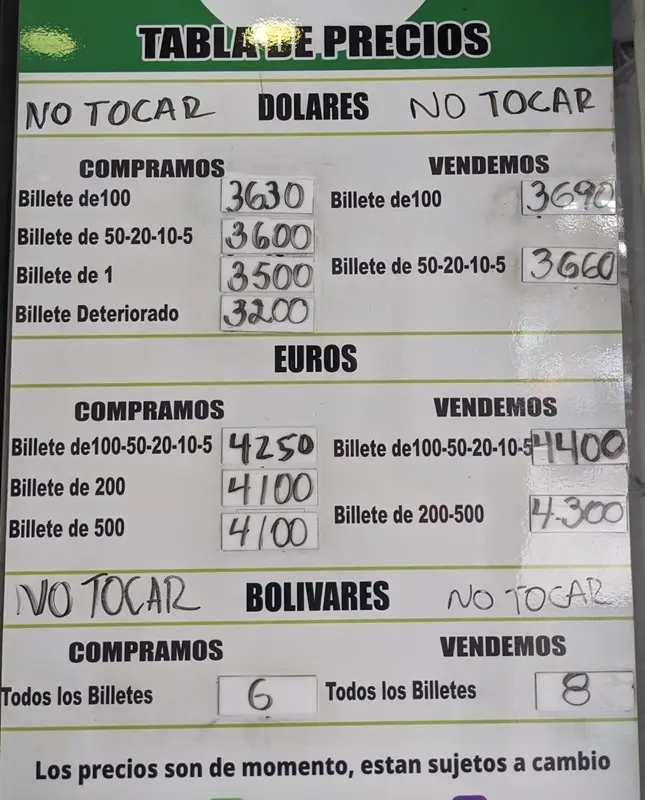 TABLA DE PRECIOS
NO TOCAR DOLARES NO TOCAR
COMPRAMOS VENDEMOS
Billete de100 3630 Billete de100 3690
Billete de 50-20-10-5 3600
Billete de 50-20-10-5 3660
Billete de 1 3500
Billete Deteriorado 3200
EUROS
COMPRAMOS VENDEMOS
Billete de100-50-20-10-5 4250 Billete de100-50-20-10-5 4400
Billete de 200 4100
Billete de 200-500 4.300
Billete de 500 4100
NO TOCAR BOLIVARES NO TOCAR
COMPRAMOS VENDEMOS
Todos los Billetes 6 Todos los Billetes 8
Los precios son de momento, estan sujetos a cambio